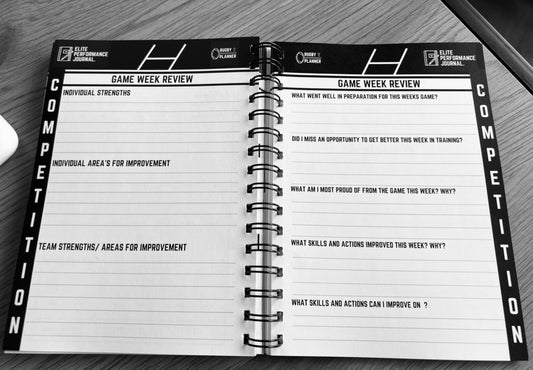 ELITE
PERFORMANCE
JOURNAL
RUGBY
PLANNER
COMPETITION
GAME WEEK REVIEW
INDIVIDUAL STRENGTHS
INDIVIDUAL AREA'S FOR IMPROVEMENT
TEAM STRENGTHS/ AREAS FOR IMPROVEMENT
RUGBY
PLANNER
ELITE
PERFORMANCE
JOURNAL
GAME WEEK REVIEW
WHAT WENT WELL IN PREPARATION FOR THIS WEEKS GAME?
DID I MISS AN OPPORTUNITY TO GET BETTER THIS WEEK IN TRAINING?
WHAT AM I MOST PROUD OF FROM THE GAME THIS WEEK? WHY?
WHAT SKILLS AND ACTIONS IMPROVED THIS WEEK? WHY?
WHAT SKILLS AND ACTIONS CAN I IMPROVE ON ?
COMPETITION